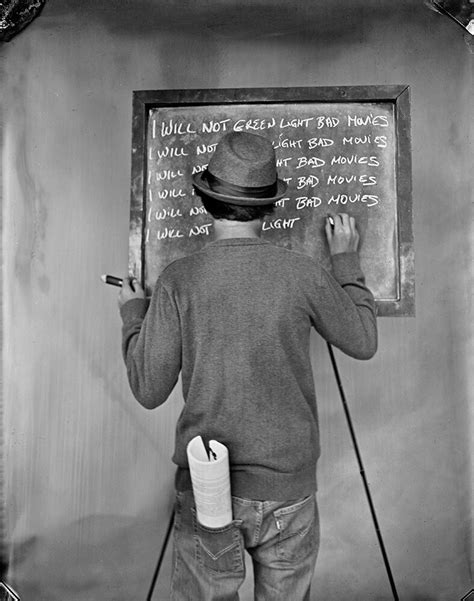 I WILL NOT GREEN LIGHT BAD MOVIES
I WILL NOT LIGHT BAD MOVIES
I WILL NOT LIGHT BAD MOVIES
I WILL NOT BAD MOVIES
I WILL NOT BAD MOVIES
I WILL NOT LIGHT